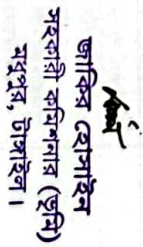 জাকির হোসাইন
সহকারী কমিশনার (ভূমি)
মধুপুর, টাঙ্গাইল।